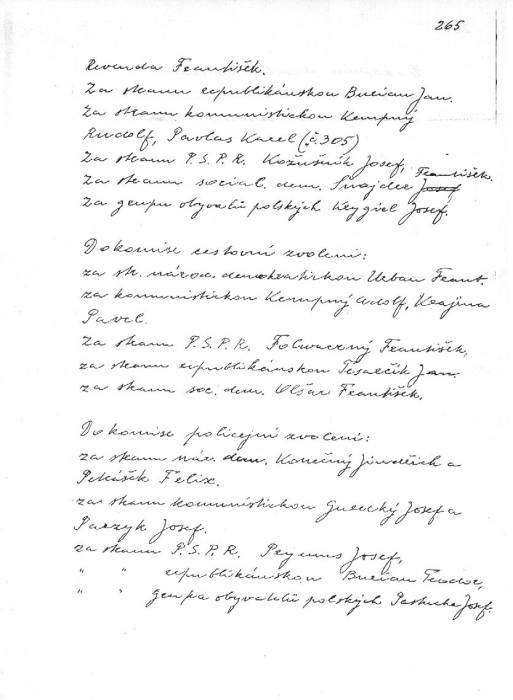 265
Revenda František.
Za stranu republikánskou Burian Jan.
Za stranu komunistickou Kempný
Rudolf, Pavlas Karel (č. 305)
Za stranu P.S.P.R. Kožušník Josef,
Za stranu social. dem. Šnajder Josef František.
Za grupu obyvatelů polských Krygiel Josef.
Do komise cestovní zvoleni:
za str. národ. demokratickou Urban Frant.
za komunistickou Kempný Adolf, Krajina
Pavel.
Za stranu P.S.P.R. Folwarczný František,
za stranu republikánskou Tesarčík Jan.
za stranu soc. dem. Olšar František.
Do komise policejní zvoleni:
za stranu nár. dem. Konečný Jindřich a
Felix.
za stranu komunistickou Gurecký Josef a
Parzyk Josef.
za stranu P.S.P.R. Prymus Josef,
" " republikánskou Burian Teodor,
" " grupa obyvatelů polských Pastucha Josef.